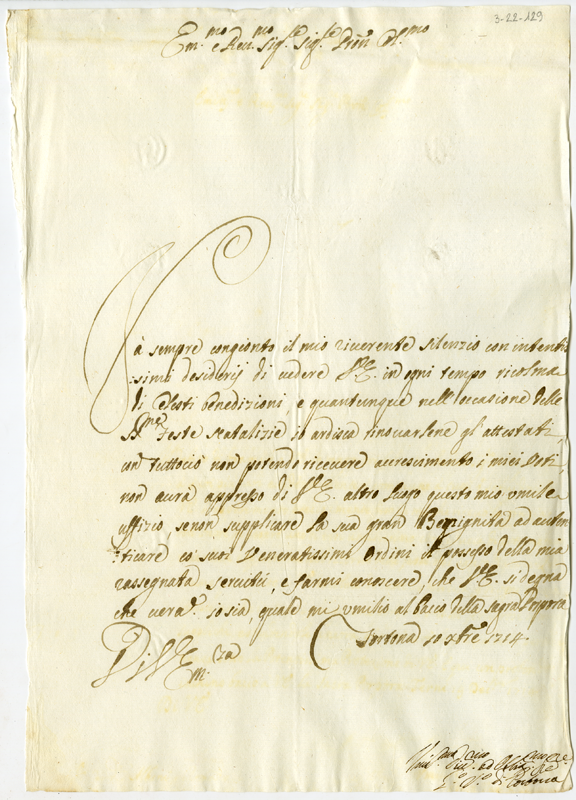 3-22-129
Em.mo e Reu.mo Sig.re Sig.re Pron Col.mo
Và sempre congionto il mio riuerente silenzio con intentis
:simi desiderij di uedere V.E. in ogni tempo ricolma
di Celesti benedizioni, e quantunque nell'occasione delle
SS.me Feste Natalizie io ardisca rinouarlene gl'attestati,
con tuttociò non potendo riceuere accrescimento i miei Voti,
non aurà appresso di V.E. altro luogo questo mio umile
uffizio, senon supplicare la sua gran Benignità ad auten
:ticare co' suoi Veneratissimi Ordini il possesso della mia
rassegnata seruitù, e farmi conoscere, che V.E. si degna
che uera.e io sia, quale mi umilio al bacio della sagra Porpora
Tortona 10 Xbre 1714.
Di V.E. Em.za
Vm.
di Tortona